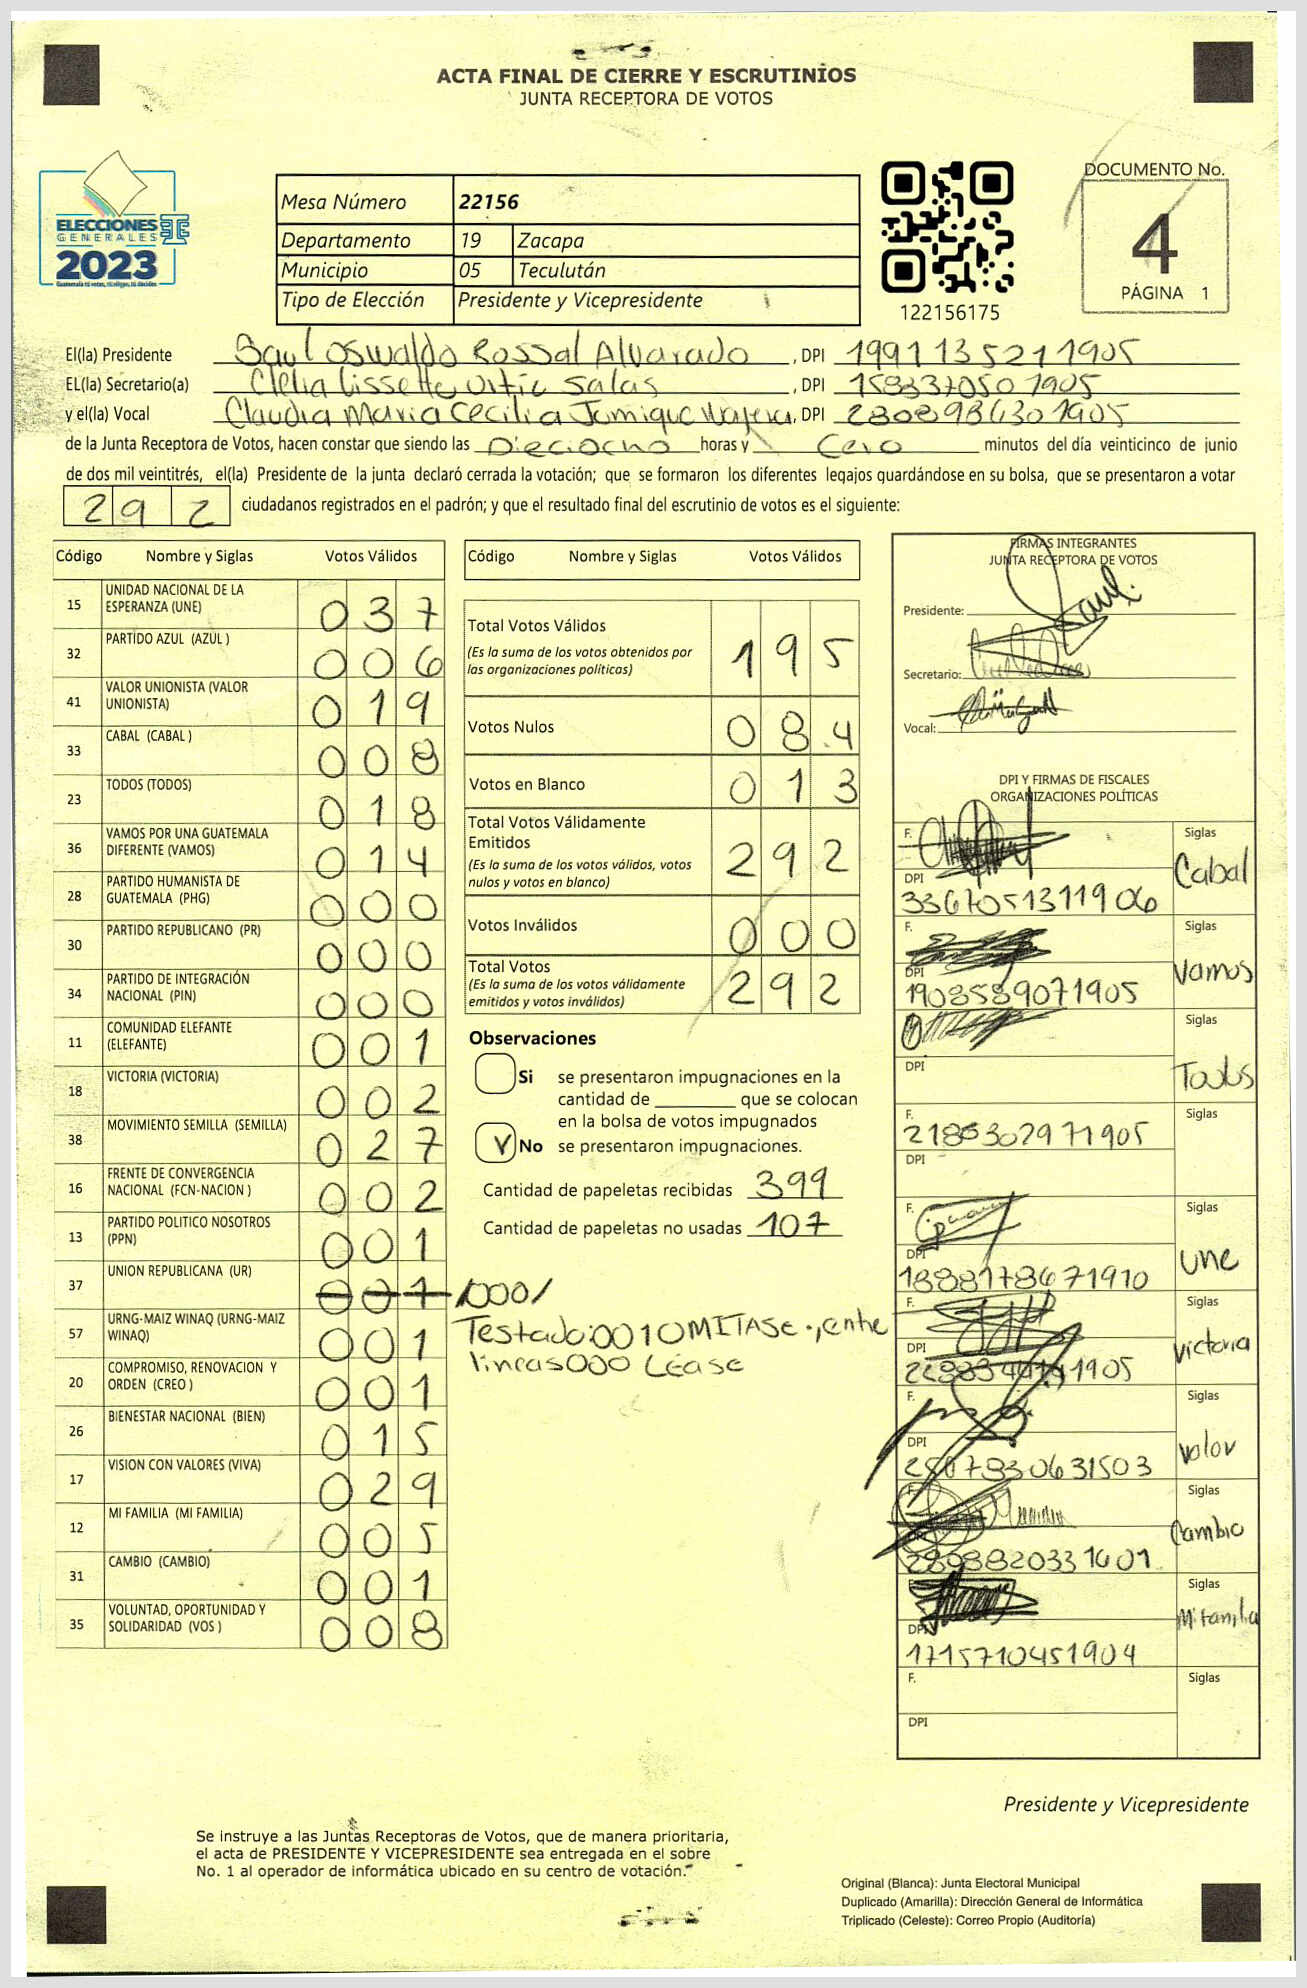 ACTA FINAL DE CIERRE Y ESCRUTINIOS
JUNTA RECEPTORA DE VOTOS
ELECCIONES
GENERALES
2023
Guatemala tú votas, tú eliges, tú decides
Mesa Número 22156
Departamento 19 Zacapa
Municipio 05 Teculután
Tipo de Elección Presidente y Vicepresidente
122156175
DOCUMENTO No.
4
PÁGINA 1
El(la) Presidente Saul Oswaldo Rossal Alvarado, DPI 1991135211905
EL(la) Secretario(a) Clelia Lissette Salas, DPI 1583370501905
y el(la) Vocal Claudia Maria Cecilia, DPI 2808984301905
de la Junta Receptora de Votos, hacen constar que siendo las Dieciocho horas y Cero minutos del día veinticinco de junio
de dos mil veintitrés, el(la) Presidente de la junta declaró cerrada la votación; que se formaron los diferentes legajos guardándose en su bolsa, que se presentaron a votar
292 ciudadanos registrados en el padrón; y que el resultado final del escrutinio de votos es el siguiente:
Código Nombre y Siglas Votos Válidos
15 UNIDAD NACIONAL DE LA ESPERANZA (UNE) 037
32 PARTIDO AZUL (AZUL ) 006
41 VALOR UNIONISTA (VALOR UNIONISTA) 019
33 CABAL (CABAL ) 008
23 TODOS (TODOS) 018
36 VAMOS POR UNA GUATEMALA DIFERENTE (VAMOS) 014
28 PARTIDO HUMANISTA DE GUATEMALA (PHG) 000
30 PARTIDO REPUBLICANO (PR) 000
34 PARTIDO DE INTEGRACIÓN NACIONAL (PIN) 000
11 COMUNIDAD ELEFANTE (ELEFANTE) 001
18 VICTORIA (VICTORIA) 002
38 MOVIMIENTO SEMILLA (SEMILLA) 027
16 FRENTE DE CONVERGENCIA NACIONAL (FCN-NACION ) 002
13 PARTIDO POLITICO NOSOTROS (PPN) 001
37 UNION REPUBLICANA (UR) 001 /000/
57 URNG-MAIZ WINAQ (URNG-MAIZ WINAQ) 001
20 COMPROMISO, RENOVACION Y ORDEN (CREO ) 001
26 BIENESTAR NACIONAL (BIEN) 015
17 VISION CON VALORES (VIVA) 029
12 MI FAMILIA (MI FAMILIA) 005
31 CAMBIO (CAMBIO) 001
35 VOLUNTAD, OPORTUNIDAD Y SOLIDARIDAD (VOS ) 008
Código Nombre y Siglas Votos Válidos
Total Votos Válidos 195
(Es la suma de los votos obtenidos por
las organizaciones políticas)
Votos Nulos 084
Votos en Blanco 013
Total Votos Válidamente
Emitidos 292
(Es la suma de los votos válidos, votos
nulos y votos en blanco)
Votos Inválidos 000
Total Votos 292
(Es la suma de los votos válidamente
emitidos y votos inválidos)
Observaciones
Si se presentaron impugnaciones en la
cantidad de ________ que se colocan
en la bolsa de votos impugnados
No se presentaron impugnaciones.
Cantidad de papeletas recibidas 399
Cantidad de papeletas no usadas 107
Testado:001 OMITASE., entre
lineas 000 LEASE
FIRMAS INTEGRANTES
JUNTA RECEPTORA DE VOTOS
Presidente:
Secretario:
Vocal:
DPI Y FIRMAS DE FISCALES
ORGANIZACIONES POLÍTICAS
F. Siglas
Cabal
DPI
3367051311906
F. Siglas
Vamos
DPI
1908589071905
Siglas
Todos
DPI
F. Siglas
2185302971905
DPI
F. Siglas
une
DPI
1888178671910
F. Siglas
victoria
DPI
F. Siglas
valor
DPI
F. Siglas
Cambio
2898820331601
Siglas
Mi familia
DPI
1715710451904
F. Siglas
DPI
Presidente y Vicepresidente
Se instruye a las Juntas Receptoras de Votos, que de manera prioritaria,
el acta de PRESIDENTE Y VICEPRESIDENTE sea entregada en el sobre
No. 1 al operador de informática ubicado en su centro de votación.
Original (Blanca): Junta Electoral Municipal
Duplicado (Amarilla): Dirección General de Informática
Triplicado (Celeste): Correo Propio (Auditoría)